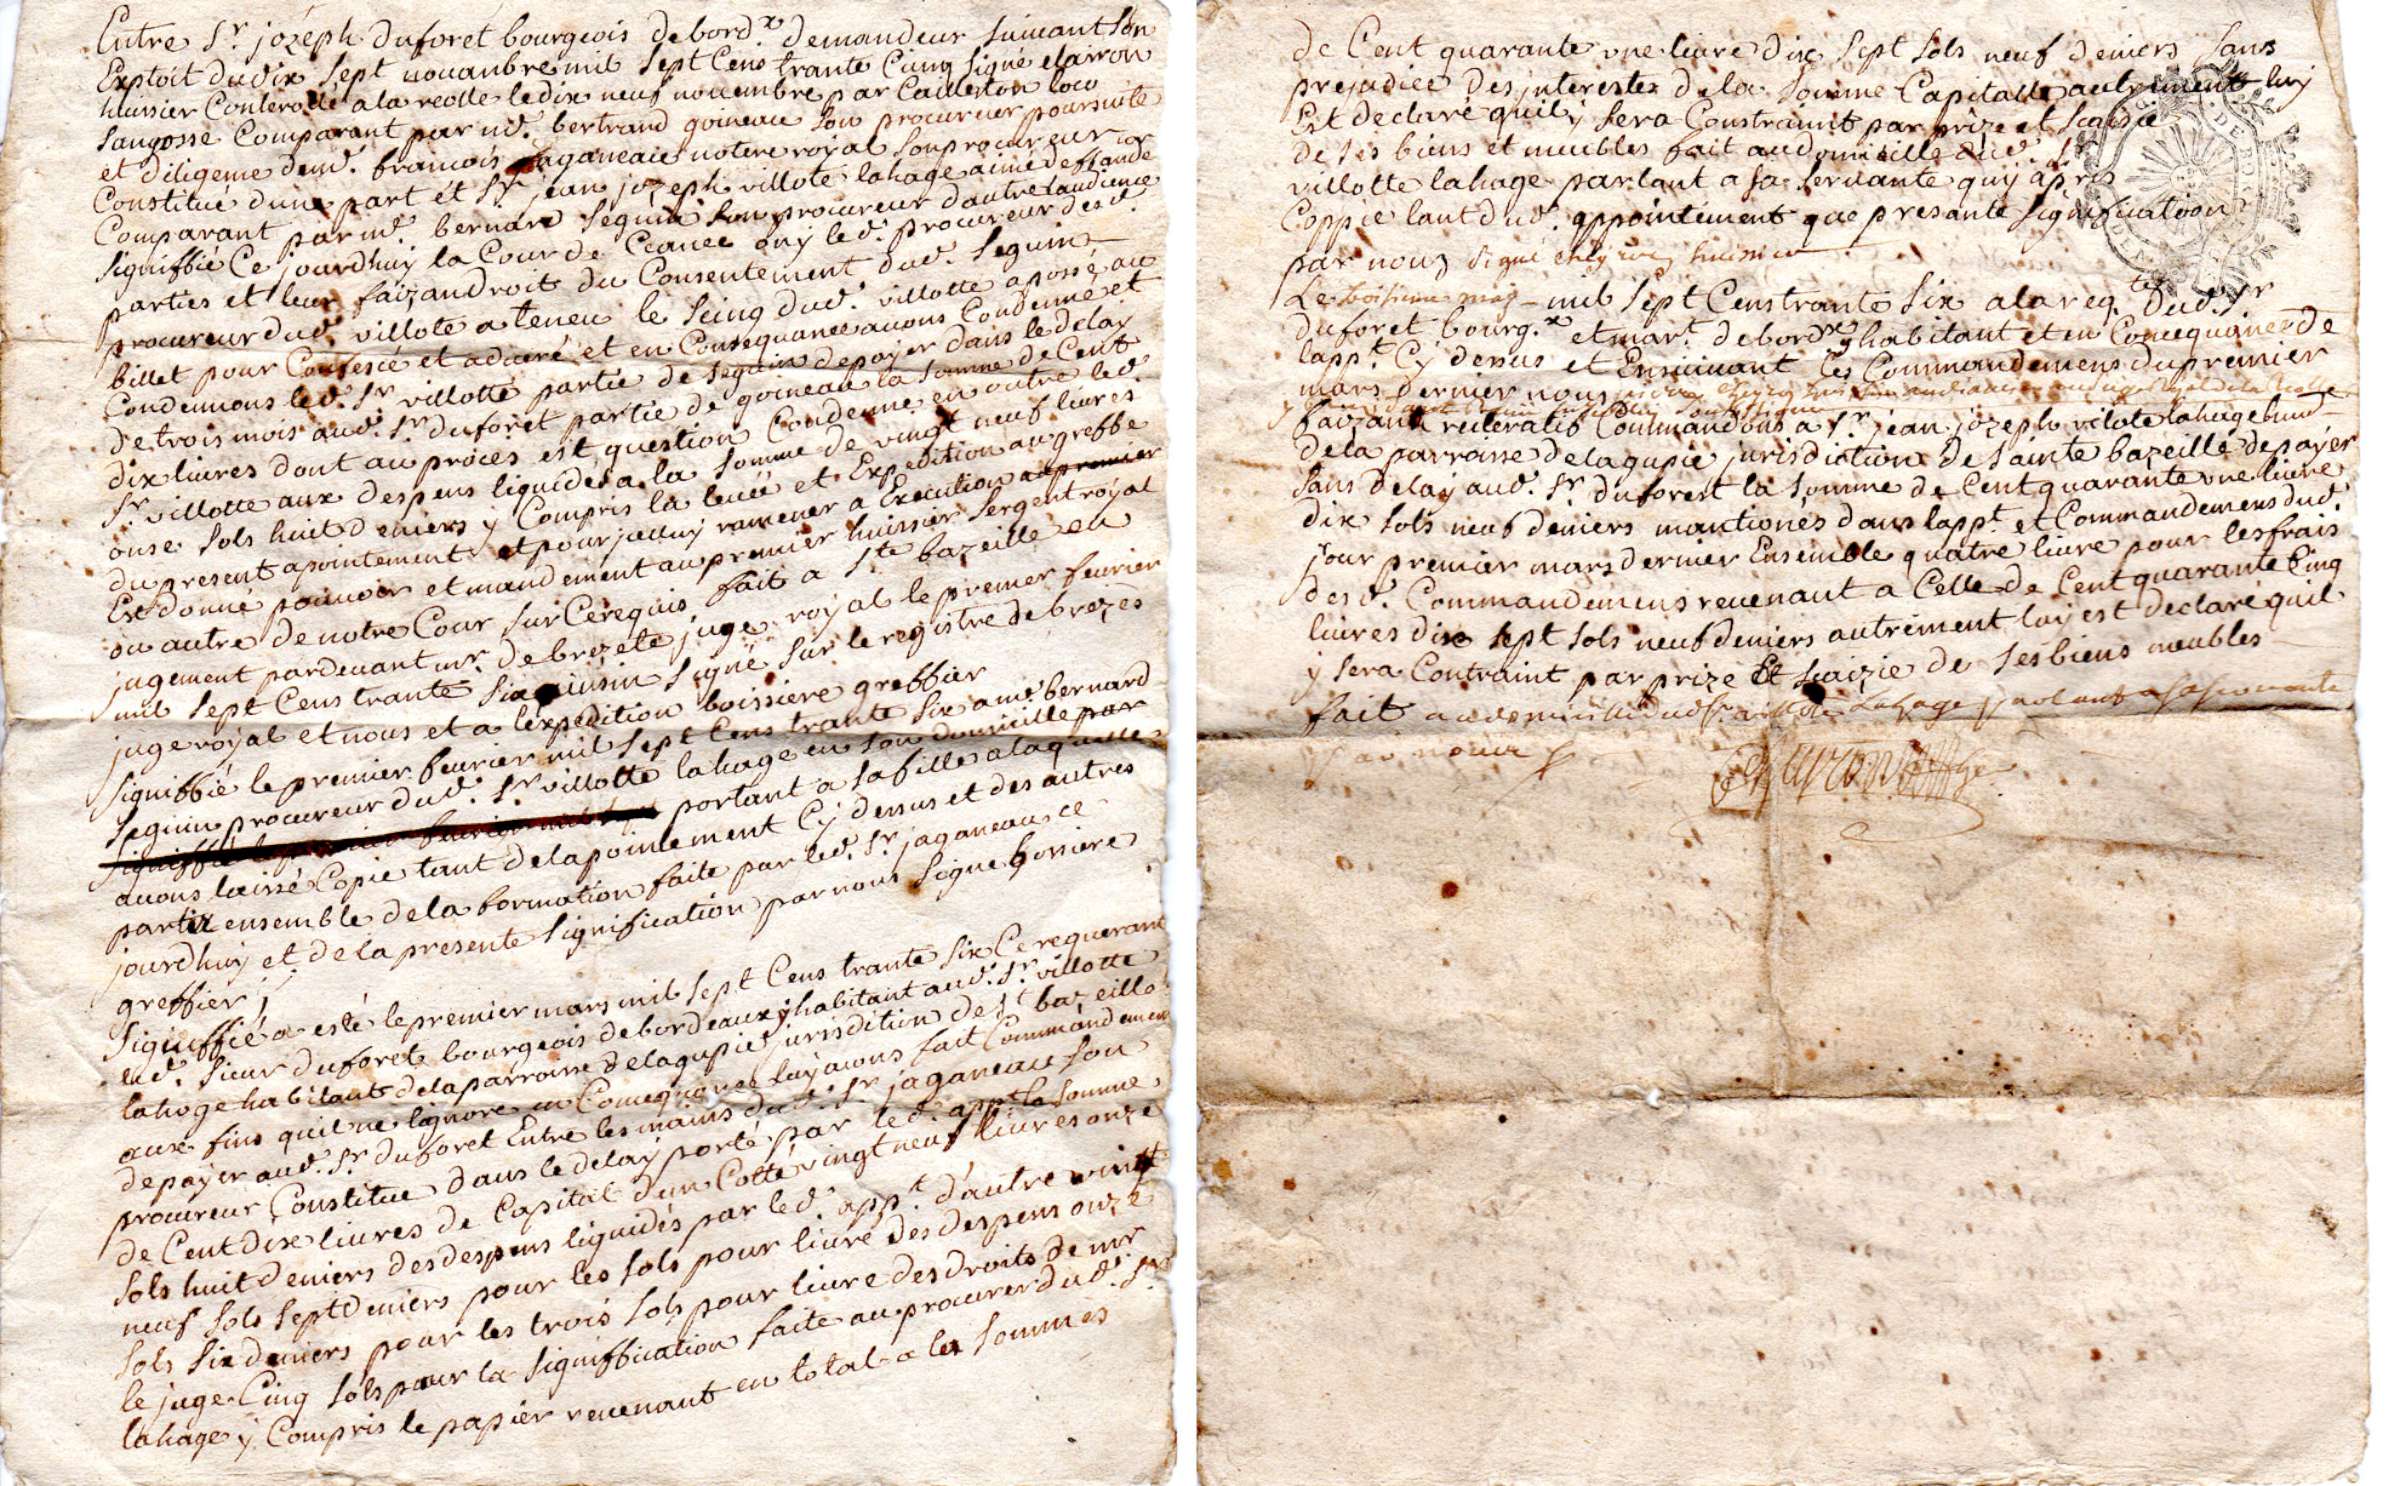 Entre Sr jozéph duforet bourgeois de bord.x demandeur suivant son
Exploit du dix sept nouanbre mil sept Cens trante Cinq signé
huissier Conterollé a la reolle le dix neuf nouembre par loco
Comparant par md. bertrand goineau son procureur poursuite
et diligeme de md. francois jaganeau notere royal son procureur
Constitué d'une part et Sr jean jozeph villote lahage deffande
Comparant par md. bernard seguin son procureur dautre laudience
signiffié Ce jourdhuy la Cour de Ceanee ouy led. procureur desd.
parties et leur faizandroit du Consentement dud. seguin
procureur dud. villote a teneu le seing dud. villotte apossé au
billet pour Confessé et adueré et en Consequance auons Condenné et
Condennons led. Sr villotte partie de seguin depayer dans le delay
de trois mois aud. Sr duforet partie de goineau la somme de Cent
dix liures dont au proces est question Condenne en outre led.
Sr villotte aux despens liquidés a la somme de vingt neuf liures
onse sols huit deniers y Compris la leuée et Expedition au greffe
du present apointement et pour jcelluy ramener a Execution au premier
Est donné pouuoir et mandement au premier huissier sergent royal
ou autre de notre Cour sur Ce requis fait a Ste bazeille en
jugement pardeuant mr. de brezets juge royal le premier feurier
mil sept Cens trante six ainsin signé sur le registre de brezes
juge royal et nous et a lexpedition boissiere greffier
signiffié le premier feurier mil sept Cens trante six a md bernard
seguin procureur dud. Sr villotte lahage en son domicille par
signiffié le premier feurier mil sept portant a sa fille a laquelle
auons laissé Copie tant de lapointement Cy dessus et des autres
partix ensemble de la formation faite par led. Sr jaganeau ce
jourdhuy et de la presente signification par nous signe boissiere
greffier
signiffié a esté le premier mars mil sept Cens trante six Ce requerant
led. sieur duforet bourgeois de bordeaux y habitant aud. Sr villotte
lahage habitant de la parroisse de lagupie jurisdition de St bazeille
aux fins quil ne lignore en Consequance luy auons fait Commandement
de payer aud. Sr duforet Entre les mains dud. Sr jaganeau son
procureur Constitue dans le delay porté par led. appt. la somme
de Cent dix liures de Capital d'un Cotté vingt neuf liures onze
sols huit deniers des despens liquidés par led. appt. d'autre vingt
neuf sols sept deniers pour les sols pour liure des despens onze
sols six deniers pour les trois sols pour liure des droits de mr
le juge Cinq sols pour la signiffication faite au procurer dud. Sr
lahage y Compris le papier reuenant en total a la sommes
de Cent quarante vne liure dix sept sols neuf deniers sans
prejudice des jnterestes de la somme Capitalle autrement luy
Est declaré quil y sera Constraint par prize et saisie
de ses biens et meubles fait au domicille dud. Sr
villotte lahage parlant a sa seruante quy a pris
Coppie tant dud. appointement que presante signification
par nouz signé huissier
Le troisieme may mil sept Cens trante six a la reqte dud. Sr
duforet bourg.x et mart. de bordx y habitant et en Consequance de
lappt. Cy dessus et Ensuiuant les Commandemens du premier
mars dernier nous
faizant reiteratif Commandons a Sr jean jozeph vilote lahage
de la parroisse de lagupie jurisdiction de sainte bazeille de payer
sans delay aud. Sr duforest la somme de Cent quarante vne liure
dix sols neuf deniers mantionés dans lappt. et Commandemens dud.
jour premier mars dernier Ensemble quatre liure pour les frais
desd. Commandemens reuenant a Celle de Cent quarante Cinq
liures dix sept sols neuf deniers autrement luy est declaré quil
y sera Contraint par prize Et saizie de ses biens meubles
fait au domicille dud Sr villote Lahage parlant a sa seruante
par nous